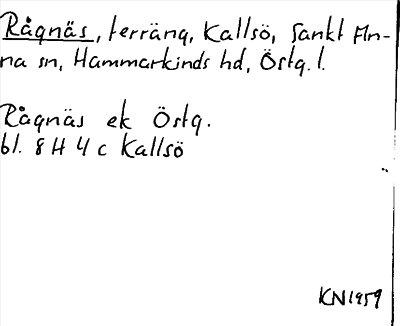 Rågnäs, terräng, Kallsö, Sankt An-
na sn, Hammarkinds hd, Östg. l.
Rågnäs ek Östg.
bl. 8 H 4 c Kallsö
KN 1959